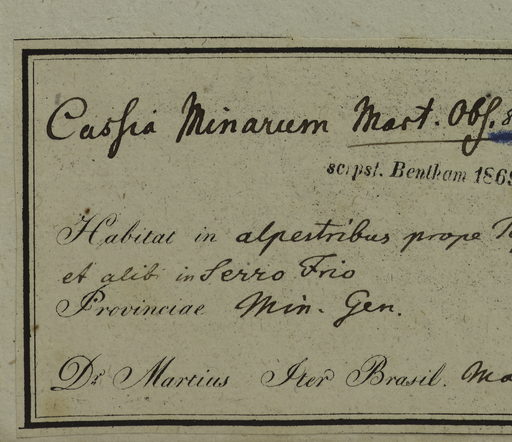 Cassia Minarum Mart. Obs.
scrpst. Bentham 1869
Habitat in alpestribus prope
et alibi in Serro Frio
Provinciae Min. Gen.
Dr Martius Iter Brasil.